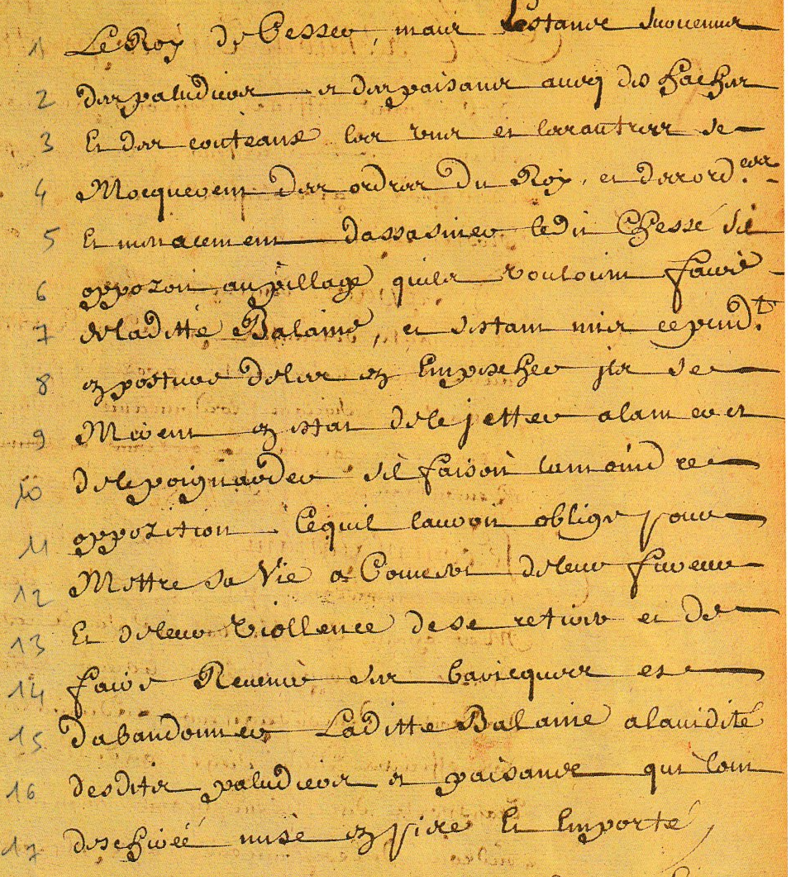 1 Le Roy de Cesser, mais Estants survenus
2 des paludiers et des paisans avecq des haches
3 Et des couteaux les uns et les autres se
4 Mocquerent des ordres du Roy, et desord.res
5 Et menacerent dassasiner ledit Chessé sil
6 opposoit au pillage quils vouloient faire
7 de laditte Balaine, et sestant mis cepend.t
8 en posture de les en Empescher ils se
9 Mirent en estat de le jetter a la mer et
10 de le poignarder sil faisoit la moindre
11 opposition Ce quil lauroit obligé pour
12 Mettre sa Vie a Couvert de leur fureur
13 Et de leur viollence de se retirer et de
14 faire Revenir ses baricques et
15 dabandonner Laditte Balaine a lavidité
16 desdits paludiers et paisans qui lont
17 deschirée mise en piece Et Emporté,